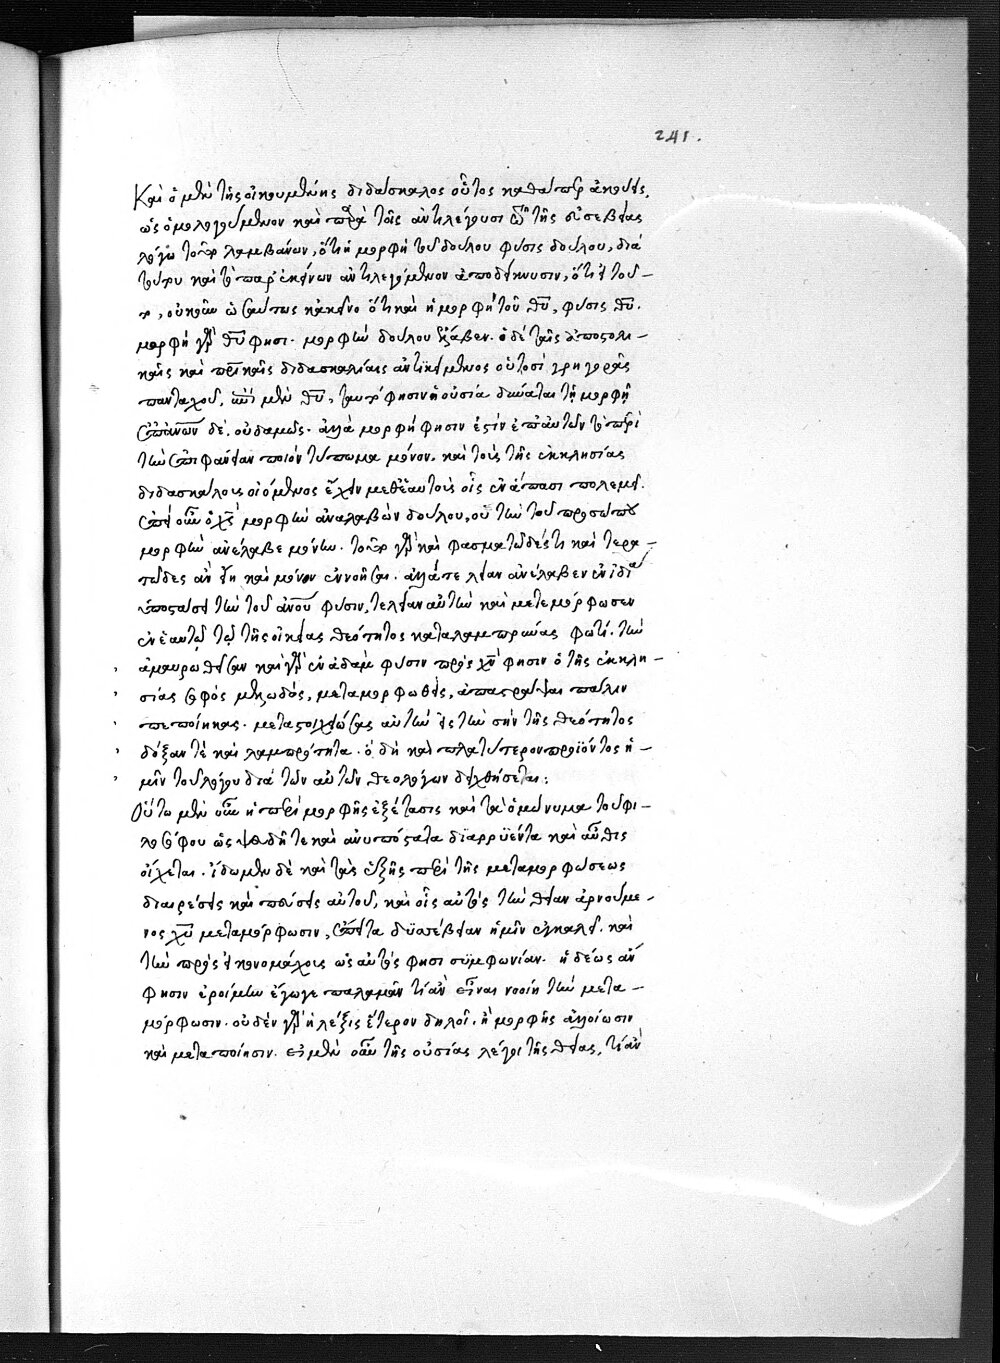 241.
Καὶ ὁ μὲν τῆς οἰκουμένης διδάσκαλος οὗτος καθάπερ ἀκούεις,
ὡς ὁμολογούμενον καὶ παρὰ τοῖς ἀντιλέγουσι ἐπὶ τῆς εὐσεβείας
λόγω τοῦτο λαμβάνων, ὅτι ἡ μορφὴ τοῦ δούλου φύσις δούλου, διὰ
τούτου καὶ τὸ παρ' ἐκείνων ἀντιλεγόμενον ἀποδείκνυσιν, ὅτι εἰ τοῦ-
το, οὐκοῦν ὡσαύτως κἀκεῖνο ὅτι καὶ ἡ μορφὴ τοῦ θυ, φύσις θυ.
μορφὴ γὰρ θυ φησι. μορφὴν δούλου ἔλαβεν. ὁ δὲ ταῖς ἀποστολι-
καῖς καὶ πρικαῖς διδασκαλίαις ἀντικείμενος οὑτοσὶ γρηγορᾶς
πανταχοῦ, ἐπὶ μὲν θυ, ταυτό φησιν ἡ οὐσία δύναται τῆ μορφῆ
ἐπ' ἀνων δὲ, οὐδαμῶς. ἀλλὰ μορφή φησιν ἐστὶν ἐπ' αὐτῶν τὸ περὶ
τὴν ἐπιφάνειαν ποιὸν τύπωμα μόνον. καὶ τοὺς τῆς ἐκκλησίας
διδασκάλους οἰόμενος ἔχειν μεθ' ἑαυτοῦ οἷς ἐν ἅπασι πολεμεῖ.
ἐπεὶ οὖν ὁ χς μορφὴν ἀναλαβὼν δούλου, οὐ τὴν τοῦ προσώπου
μορφὴν ἀνέλαβε μόνην. τοῦτο γὰρ καὶ φασματῶδές τι καὶ τερα-
τῶδες ἂν εἴη καὶ μόνον ἐννοῆσαι. ἀλλὰ τελείαν ἀνέλαβεν ἐν ἰδία
ὑποστάσει τὴν τοῦ ἀνου φύσιν, τελείαν αὐτὴν καὶ μετεμόρφωσεν
ἐν ἑαυτῶ τῶ τῆς οἰκείας θεότητος καταλαμπρύνας φωτί. τὴν
ἀμαυρωθεῖσαν καὶ γὰρ ἐν ἀδὰμ φύσιν πρὸς χν φησιν ὁ τῆς ἐκκλη-
σίας σοφὸς μελωδὸς, μεταμορφωθεὶς, ἀπαστράψαι πάλιν
πεποίηκας. μεταστοιχειώσας αὐτὴν εἰς τὴν σὴν τῆς θεότητος
δόξαν τὲ καὶ λαμπρότητα. ὃ δὴ καὶ πλατύτερον προϊόντος ἡ-
μῖν τοῦ λόγου διὰ τῶν αὐτῶν θεολόγων δειχθήσεται:
Οὕτω μὲν οὖν ἡ περὶ μορφῆς ἐξέτασις καὶ τὰ ὁμώνυμα τοῦ φι-
λοσόφου ὡς ψευδῆ τε καὶ ἀνυπόστατα διαρρυέντα καὶ αὖθις
οἴχεται. ἴδωμεν δὲ καὶ τὰς ἑξῆς περὶ τῆς μεταμορφώσεως
διαιρέσεις καὶ πεύσεις αὐτοῦ, καὶ οἷς αὐτὸς τὴν θείαν ἀρνούμε-
νος χυ μεταμόρφωσιν, ἔπειτα δυσσέβειαν ἡμῖν ἐγκαλεῖ. καὶ
τὴν πρὸς εἰκονομάχους ὡς αὐτὸς φησι συμφωνίαν. ἡδέως ἂν
φησιν ἐροίμην ἔγωγε παλαμᾶν τί ἂν εἶναι νοοίη τὴν μετα-
μόρφωσιν. οὐδὲν γὰρ ἡ λέξις ἕτερον δηλοῖ. ἢ μορφῆς ἀλλοίωσιν
καὶ μεταποίησιν. εἰ μὲν οὖν τῆς οὐσίας λέγοι τῆς θείας, τί ἂν